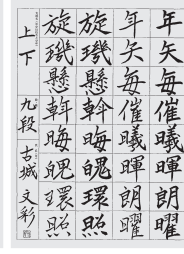 年矢毎催曦暉朗曜
年矢毎催曦暉朗曜
旋璣懸斡晦魄環照
旋璣懸斡晦魄環照
上下 九段 古城文彩